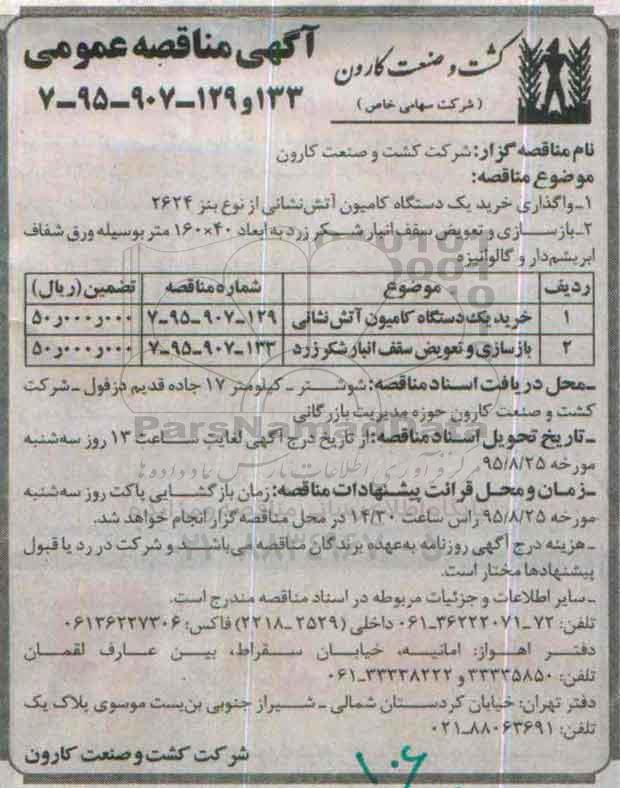 آگهی مناقصه عمومی
۱۳۳ و ۱۲۹-۹۰۷-۹۵-۷
کشت و صنعت کارون
(شرکت سهامی خاص)
نام مناقصه گزار: شرکت کشت و صنعت کارون
موضوع مناقصه:
۱-واگذاری خرید یک دستگاه کامیون آتش‌نشانی از نوع بنز ۲۶۲۴
۲-بازسازی و تعویض سقف انبار شکر زرد به ابعاد ۴۰×۱۶۰ متر بوسیله ورق شفاف
ابریشم‌دار و گالوانیزه
ردیف موضوع شماره مناقصه تضمین (ریال)
۱ خرید یک دستگاه کامیون آتش نشانی ۱۲۹-۹۰۷-۹۵-۷ ۵۰ر۰۰۰ر۰۰۰
۲ بازسازی و تعویض سقف انبار شکر زرد ۱۳۳-۹۰۷-۹۵-۷ ۵۰ر۰۰۰ر۰۰۰
-محل دریافت اسناد مناقصه: شوشتر - کیلومتر ۱۷ جاده قدیم دزفول - شرکت
کشت و صنعت کارون حوزه مدیریت بازرگانی
-تاریخ تحویل اسناد مناقصه: از تاریخ درج آگهی لغایت ساعت ۱۳ روز سه‌شنبه
مورخه ۹۵/۸/۲۵
-زمان و محل قرائت پیشنهادات مناقصه: زمان بازگشایی پاکت روز سه‌شنبه
مورخه ۹۵/۸/۲۵ راس ساعت ۱۴/۳۰ در محل مناقصه گزار انجام خواهد شد.
-هزینه درج آگهی روزنامه به‌عهده برندگان مناقصه می‌باشد و شرکت در رد یا قبول
پیشنهادها مختار است.
-سایر اطلاعات و جزئیات مربوطه در اسناد مناقصه مندرج است.
تلفن: ۷۲-۳۶۲۲۲۰۷۱-۰۶۱ داخلی (۲۵۲۹-۲۲۱۸) فاکس: ۰۶۱۳۶۲۲۷۳۰۶
دفتر اهواز: امانیه، خیابان سقراط، بین عارف لقمان
تلفن: ۳۳۳۳۵۸۵۰ و ۳۳۳۳۸۲۲۲-۰۶۱
دفتر تهران: خیابان کردستان شمالی - شیراز جنوبی بن‌بست موسوی پلاک یک
تلفن: ۸۸۰۶۳۶۹۱-۰۲۱
شرکت کشت و صنعت کارون
۱۰۶
ParsNamadData